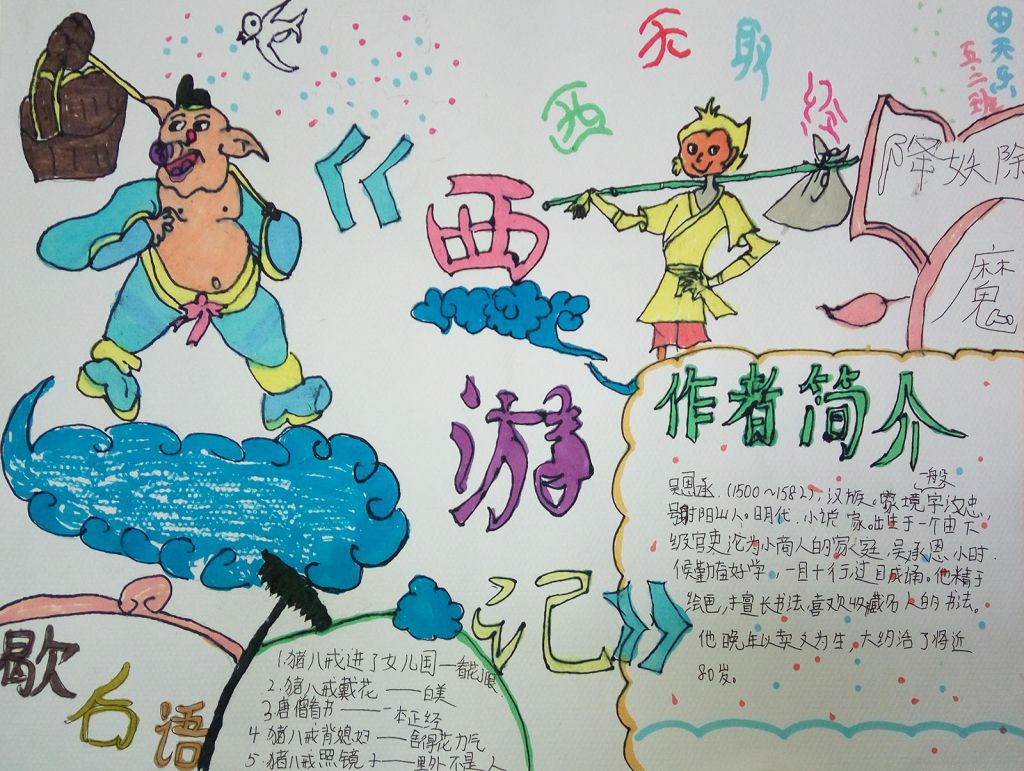 西天取经
田天乐
五.二班
《西游记》
降妖除
魔
作者简介
一般
吴恩承.(1500~1582),汉族。家境字汝忠,
号射阳山人。明代.小说家。出生于一个由下
级官吏沦为小商人的家庭,吴承恩小时
候勤奋好学,一目十行,过目成诵。他精于
绘色,擅长书法,喜欢收藏名人的书法。
他晚年以卖文为生,大约活了将近
80岁。
歇
后
语
1.猪八戒进了女儿国一看花眼
2.猪八戒戴花——白美
3.唐僧看书——一本正经
4.猪八戒背媳妇——舍得花力气
5.猪八戒照镜子——里外不是人